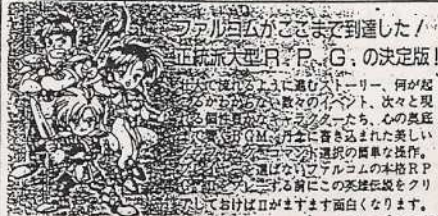 ファルコムがここまで到達した!
正統派大型R.P.G.の決定版!
流れるように進むストーリー、何が起
るかわからない数々のイベント、次々と現
個性豊かなキャラクターたち、心の奥底
GM、丹念に書き込まれた美しい
コマンド選択の簡単な操作。
選ばないファルコムの本格RP
プレーする前にこの英雄伝説をクリ
アしておけばⅡがますます面白くなります。